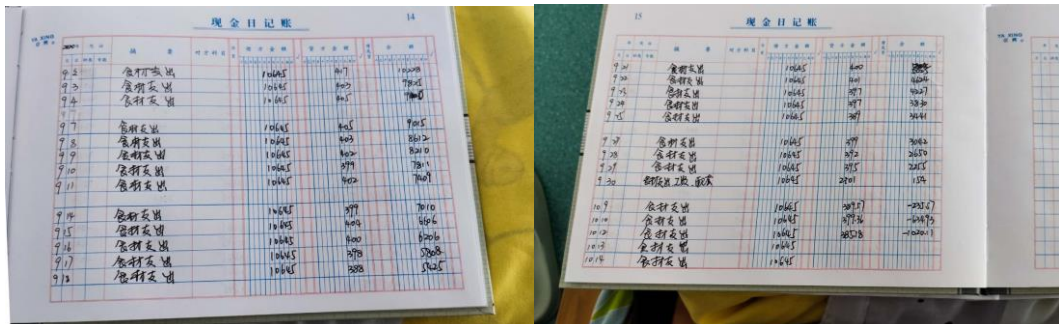 现金日记账 14
摘要 对方科目 借方金额 贷方金额 余额
9 2 食材支出 10645 417 10228
9 3 食材支出 10645 403 9825
9 4 食材支出 10645 405
9 7 食材支出 10645 405 9015
9 8 食材支出 10645 403 8612
9 9 食材支出 10645 402 8210
9 10 食材支出 10645 399 7811
9 11 食材支出 10645 402 7409
9 14 食材支出 10645 399 7010
9 15 食材支出 10645 404 6606
9 16 食材支出 10645 400 6206
9 17 食材支出 10645 398 5808
9 18 食材支出 10645 383 5425
15 现金日记账
摘要 对方科目 借方金额 贷方金额 余额
9 21 食材支出 10645 400
9 22 食材支出 10645 401 4624
9 23 食材支出 10645 397 4227
9 24 食材支出 10645 397 3830
9 25 食材支出 10645 389 3441
食材支出 10645 399 3042
9 28 食材支出 10645 392 2650
9 29 食材支出 10645 395 2255
9 30 食材支出 10645 2301 154
10 9 食材支出 10645
10 10 食材支出 10645
10 12 食材支出 10645
10 13 食材支出 10645
10 14 食材支出 10645